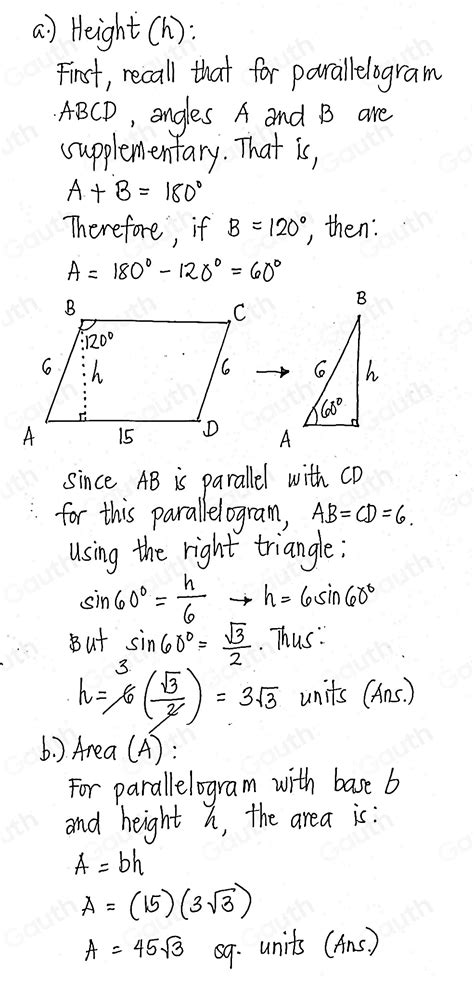 a.) Height (h):
First, recall that for parallelogram
ABCD, angles A and B are
supplementary. That is,
A + B = 180°
Therefore, if B = 120°, then:
A = 180° - 120° = 60°
B C B
120°
6 h 6 → 6 h
60°
A 15 D A
Since AB is parallel with CD
for this parallelogram, AB = CD = 6.
Using the right triangle:
sin 60° = h/6 → h = 6 sin 60°
But sin 60° = √3/2. Thus:
3
h = 6 (√3/2) = 3√3 units (Ans.)
b.) Area (A):
For parallelogram with base b
and height h, the area is:
A = bh
A = (15)(3√3)
A = 45√3 sq. units (Ans.)
Gauth